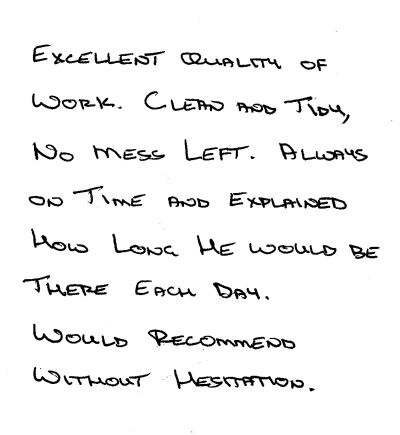 Excellent Quality of
Work. Clean and Tidy,
No mess Left. Always
on Time and Explained
How Long He would be
There Each Day.
Would Recommend
Without Hesitation.